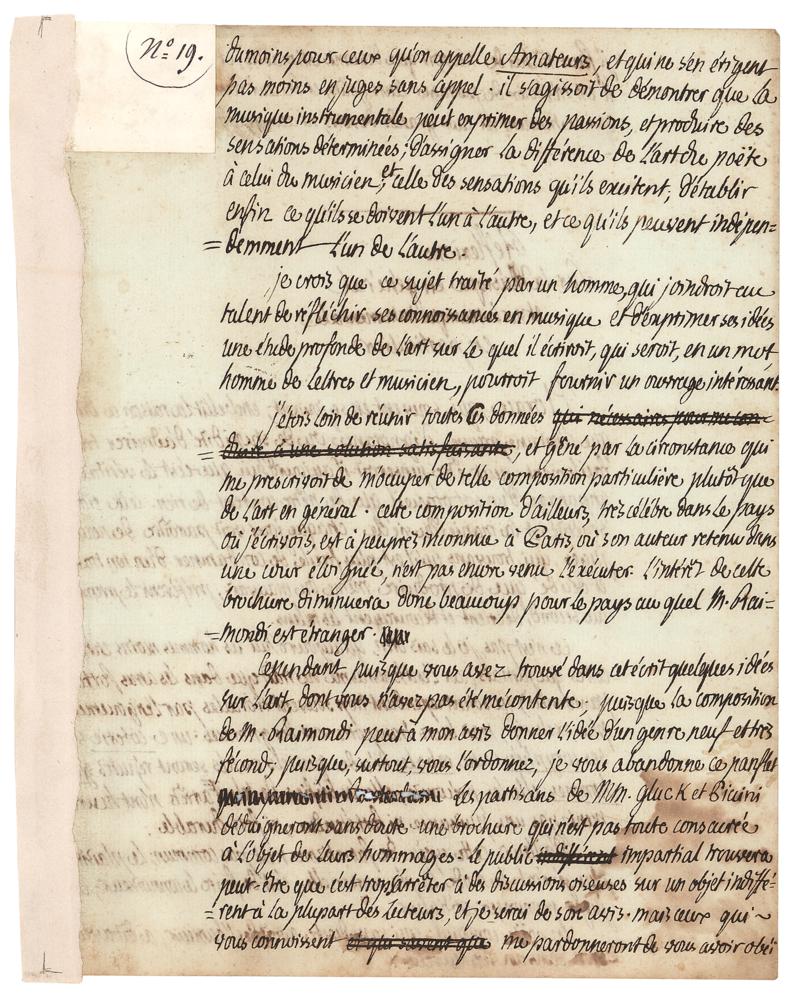 N.º 19.
du moins pour ceux qu'on appelle Amateurs, et qui ne s'en érigent
pas moins en juges sans appel. il s'agissoit de démontrer que la
musique instrumentale peut exprimer des passions, et produire des
sensations déterminées; d'assigner la différence de l'art du poëte
à celui du musicien, et celle des sensations qu'ils excitent; d'établir
enfin ce qu'ils se doivent l'un à l'autre, et ce qu'ils peuvent indépen=
=demment l'un de l'autre.
je crois que ce sujet traité par un homme, qui joindroit au
talent de réfléchir ses connoissances en musique et d'exprimer ses idées
une étude profonde de l'art sur le quel il écriroit, qui seroit, en un mot
homme de lettres et musicien, pourroit fournir un ouvrage intéressant.
j'étois loin de réunir toutes ces données qui nécessaires pour me con-
=duire à une solution satisfaisante, et gêné par la circonstance qui
me prescrivoit de m'occuper de telle composition particulière plutôt que
de l'art en général. cette composition d'ailleurs, très célèbre dans le pays
où j'écrivois, est à peu près inconnue à Paris, où son auteur retenu dans
une cour éloignée, n'est pas encore venu l'exécuter. L'intérêt de cette
brochure diminuera donc beaucoup pour le pays au quel M. Rai=
=mondi est étranger.
Cependant puisque vous avez trouvé dans cet écrit quelques idées
sur l'art, dont vous n'avez pas été mécontente; puisque la composition
de M. Raimondi peut à mon avis donner l'idée d'un genre neuf et très
fécond; puisque, surtout, vous l'ordonnez, je vous abandonne ce pamflet
Les partisans de MM. Gluck et Picini
dédaigneront sans doute une brochure qui n'est pas toute consacrée
à l'objet de leurs hommages. le public indifférent impartial trouvera
peut-être que c'est trop s'arrêter à des discussions oiseuses sur un objet indiffé=
=rent à la plupart des lecteurs, et je serai de son avis. mais ceux qui
vous connoissent et qui savent que me pardonneront de vous avoir obéi